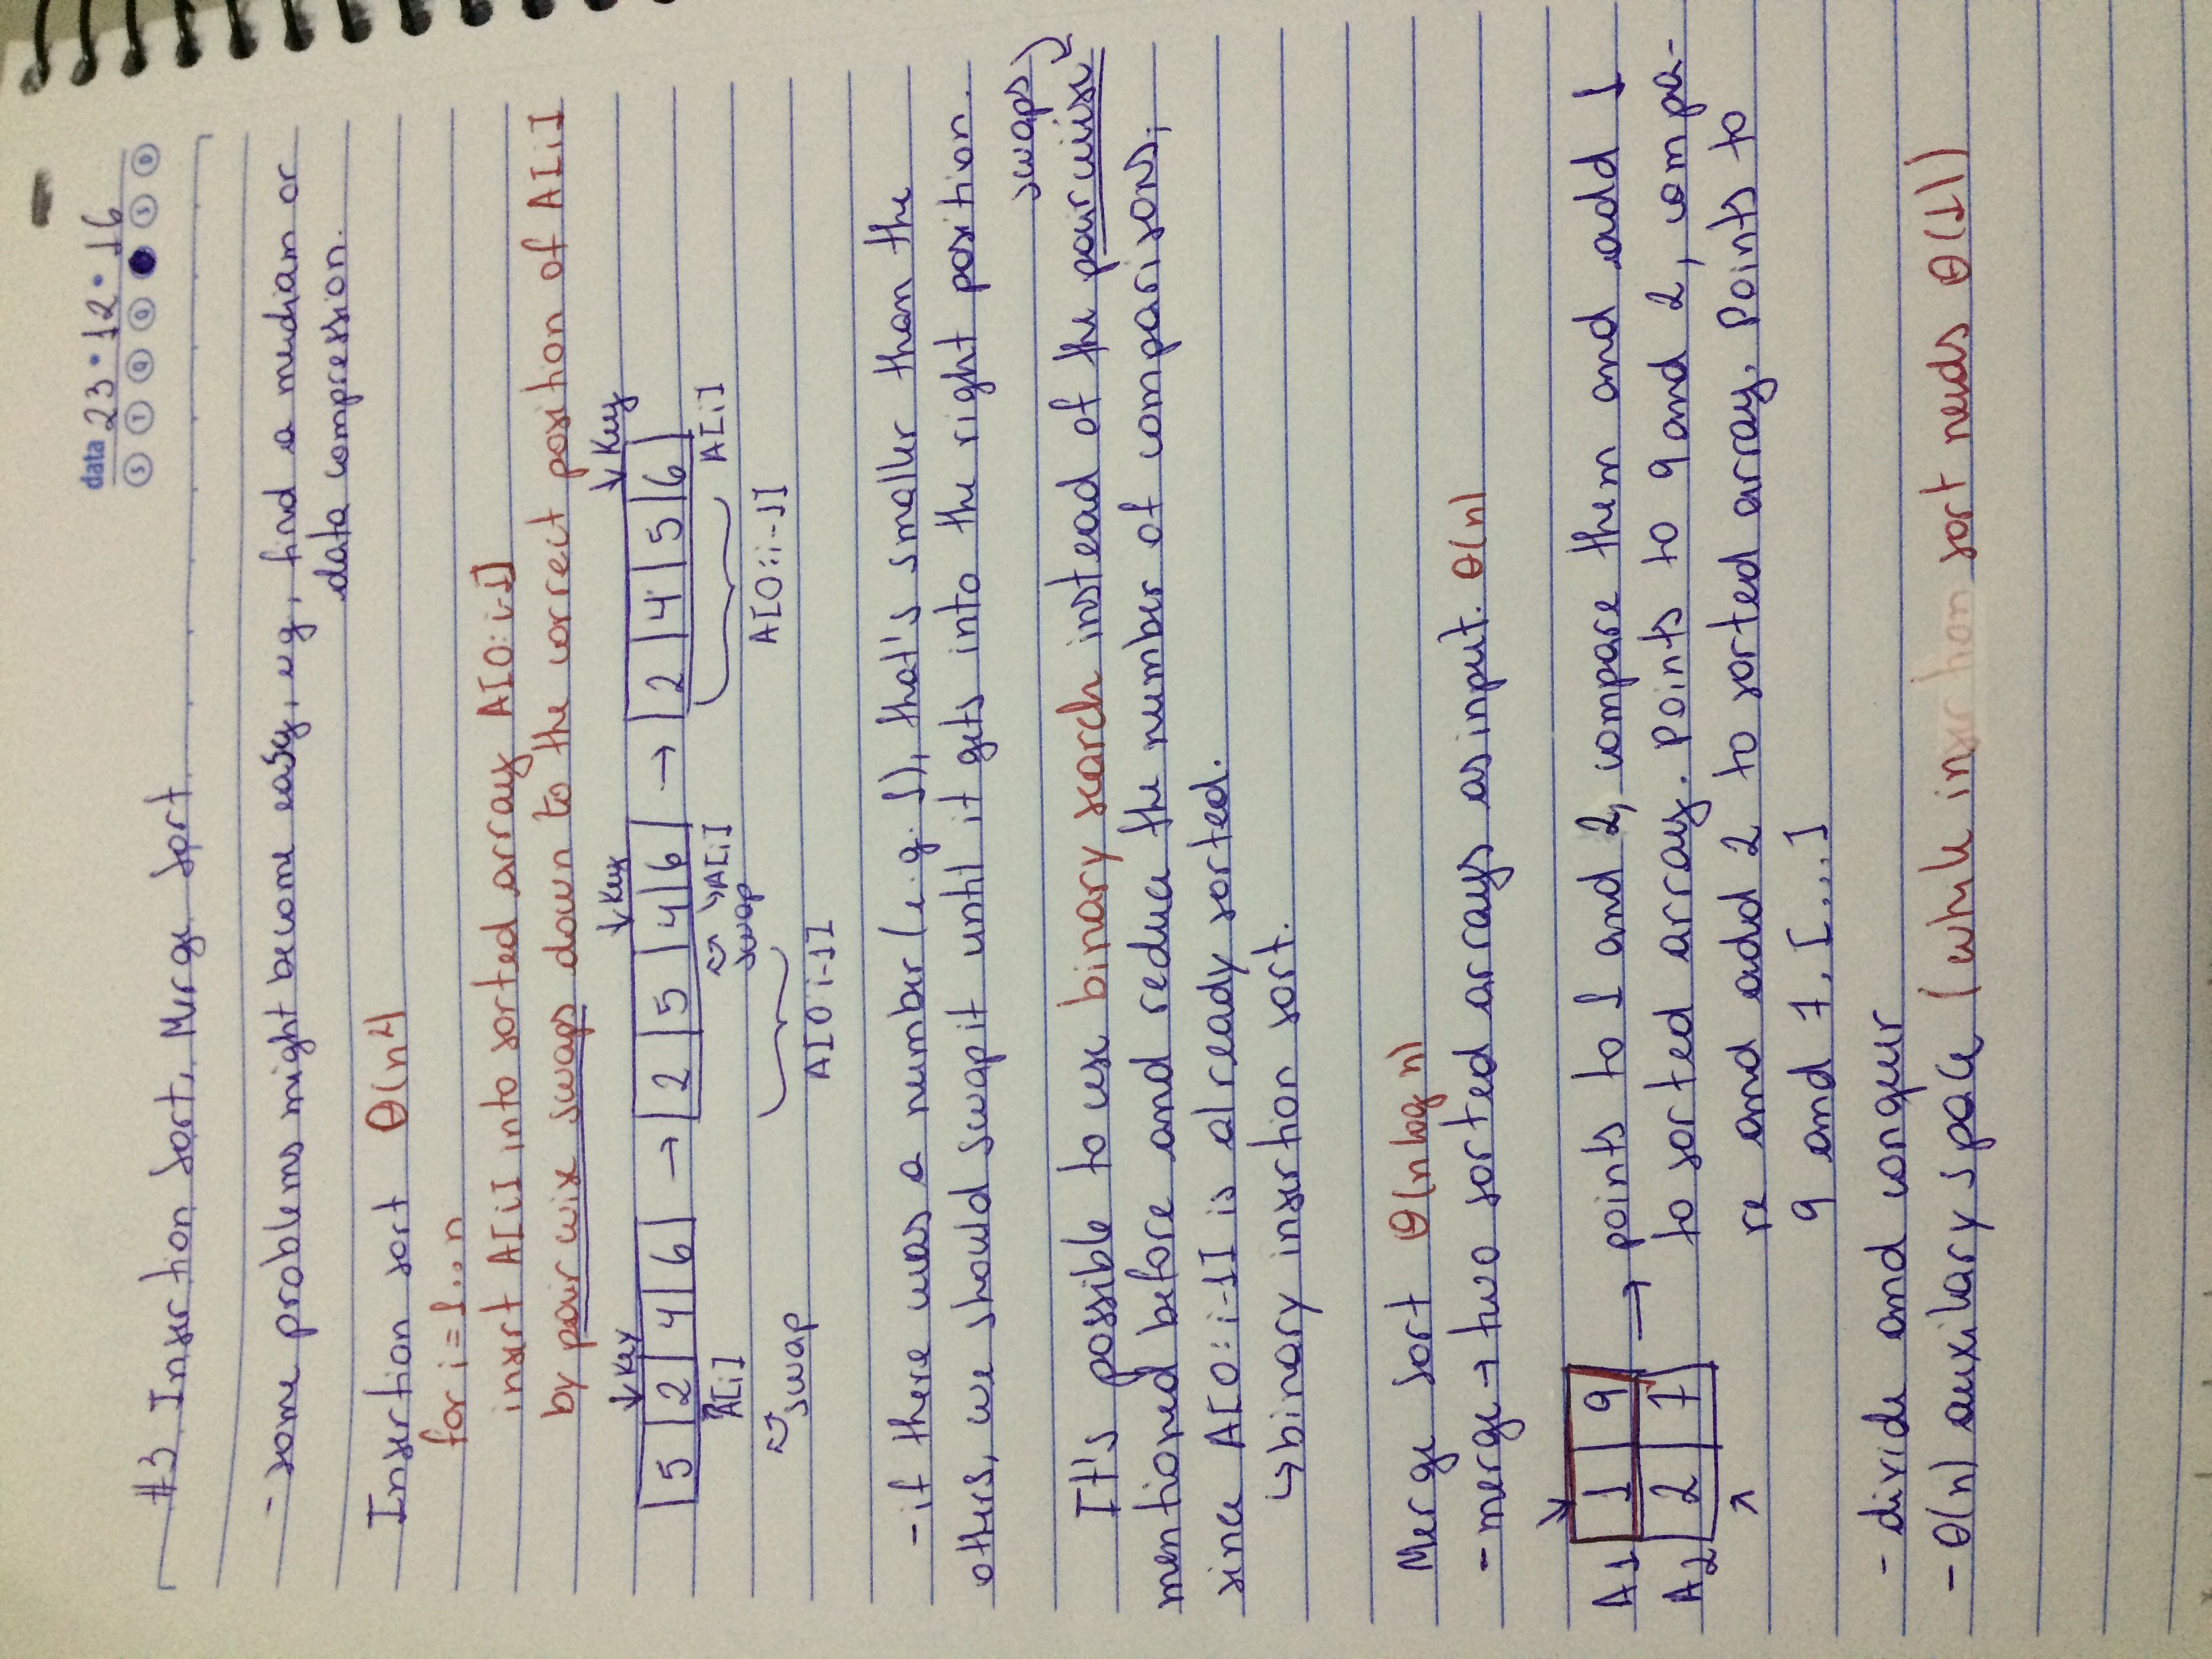 data 23 • 12 • 16
S T Q Q S D
#3 Insertion Sort, Merge Sort
- some problems might become easy, eg, find a mediam or
data compression.
Insertion sort Θ(n²)
for i = 1...n
insert A[i] into sorted array A[0:i-1]
by pair wise swaps down to the correct position of A[i]
↓Key ↓Key ↓Key
5 2 4 6 → 2 5 4 6 → 2 4 5 6
A[i] ↳A[i] A[i]
swap swap A[0:i-1]
A[0:i-1]
- if there was a number (e.g. 1), that's smaller than the
others, we should swap it until it gets into the right position.
swaps
It's possible to use binary search instead of the pairwise
mentioned before and reduce the number of comparisons,
since A[0:i-1] is already sorted.
↳binary insertion sort.
Merge Sort Θ(n log n)
- merge → two sorted arrays as input. Θ(n)
A1 1 9 → points to 1 and 2, compare them and add 1
A2 2 7 to sorted array. Points to 9 and 2, compa-
re and add 2 to sorted array. Points to
9 and 7. [...]
- divide and conquer
- Θ(n) auxilary space (while insertion sort needs Θ(1))